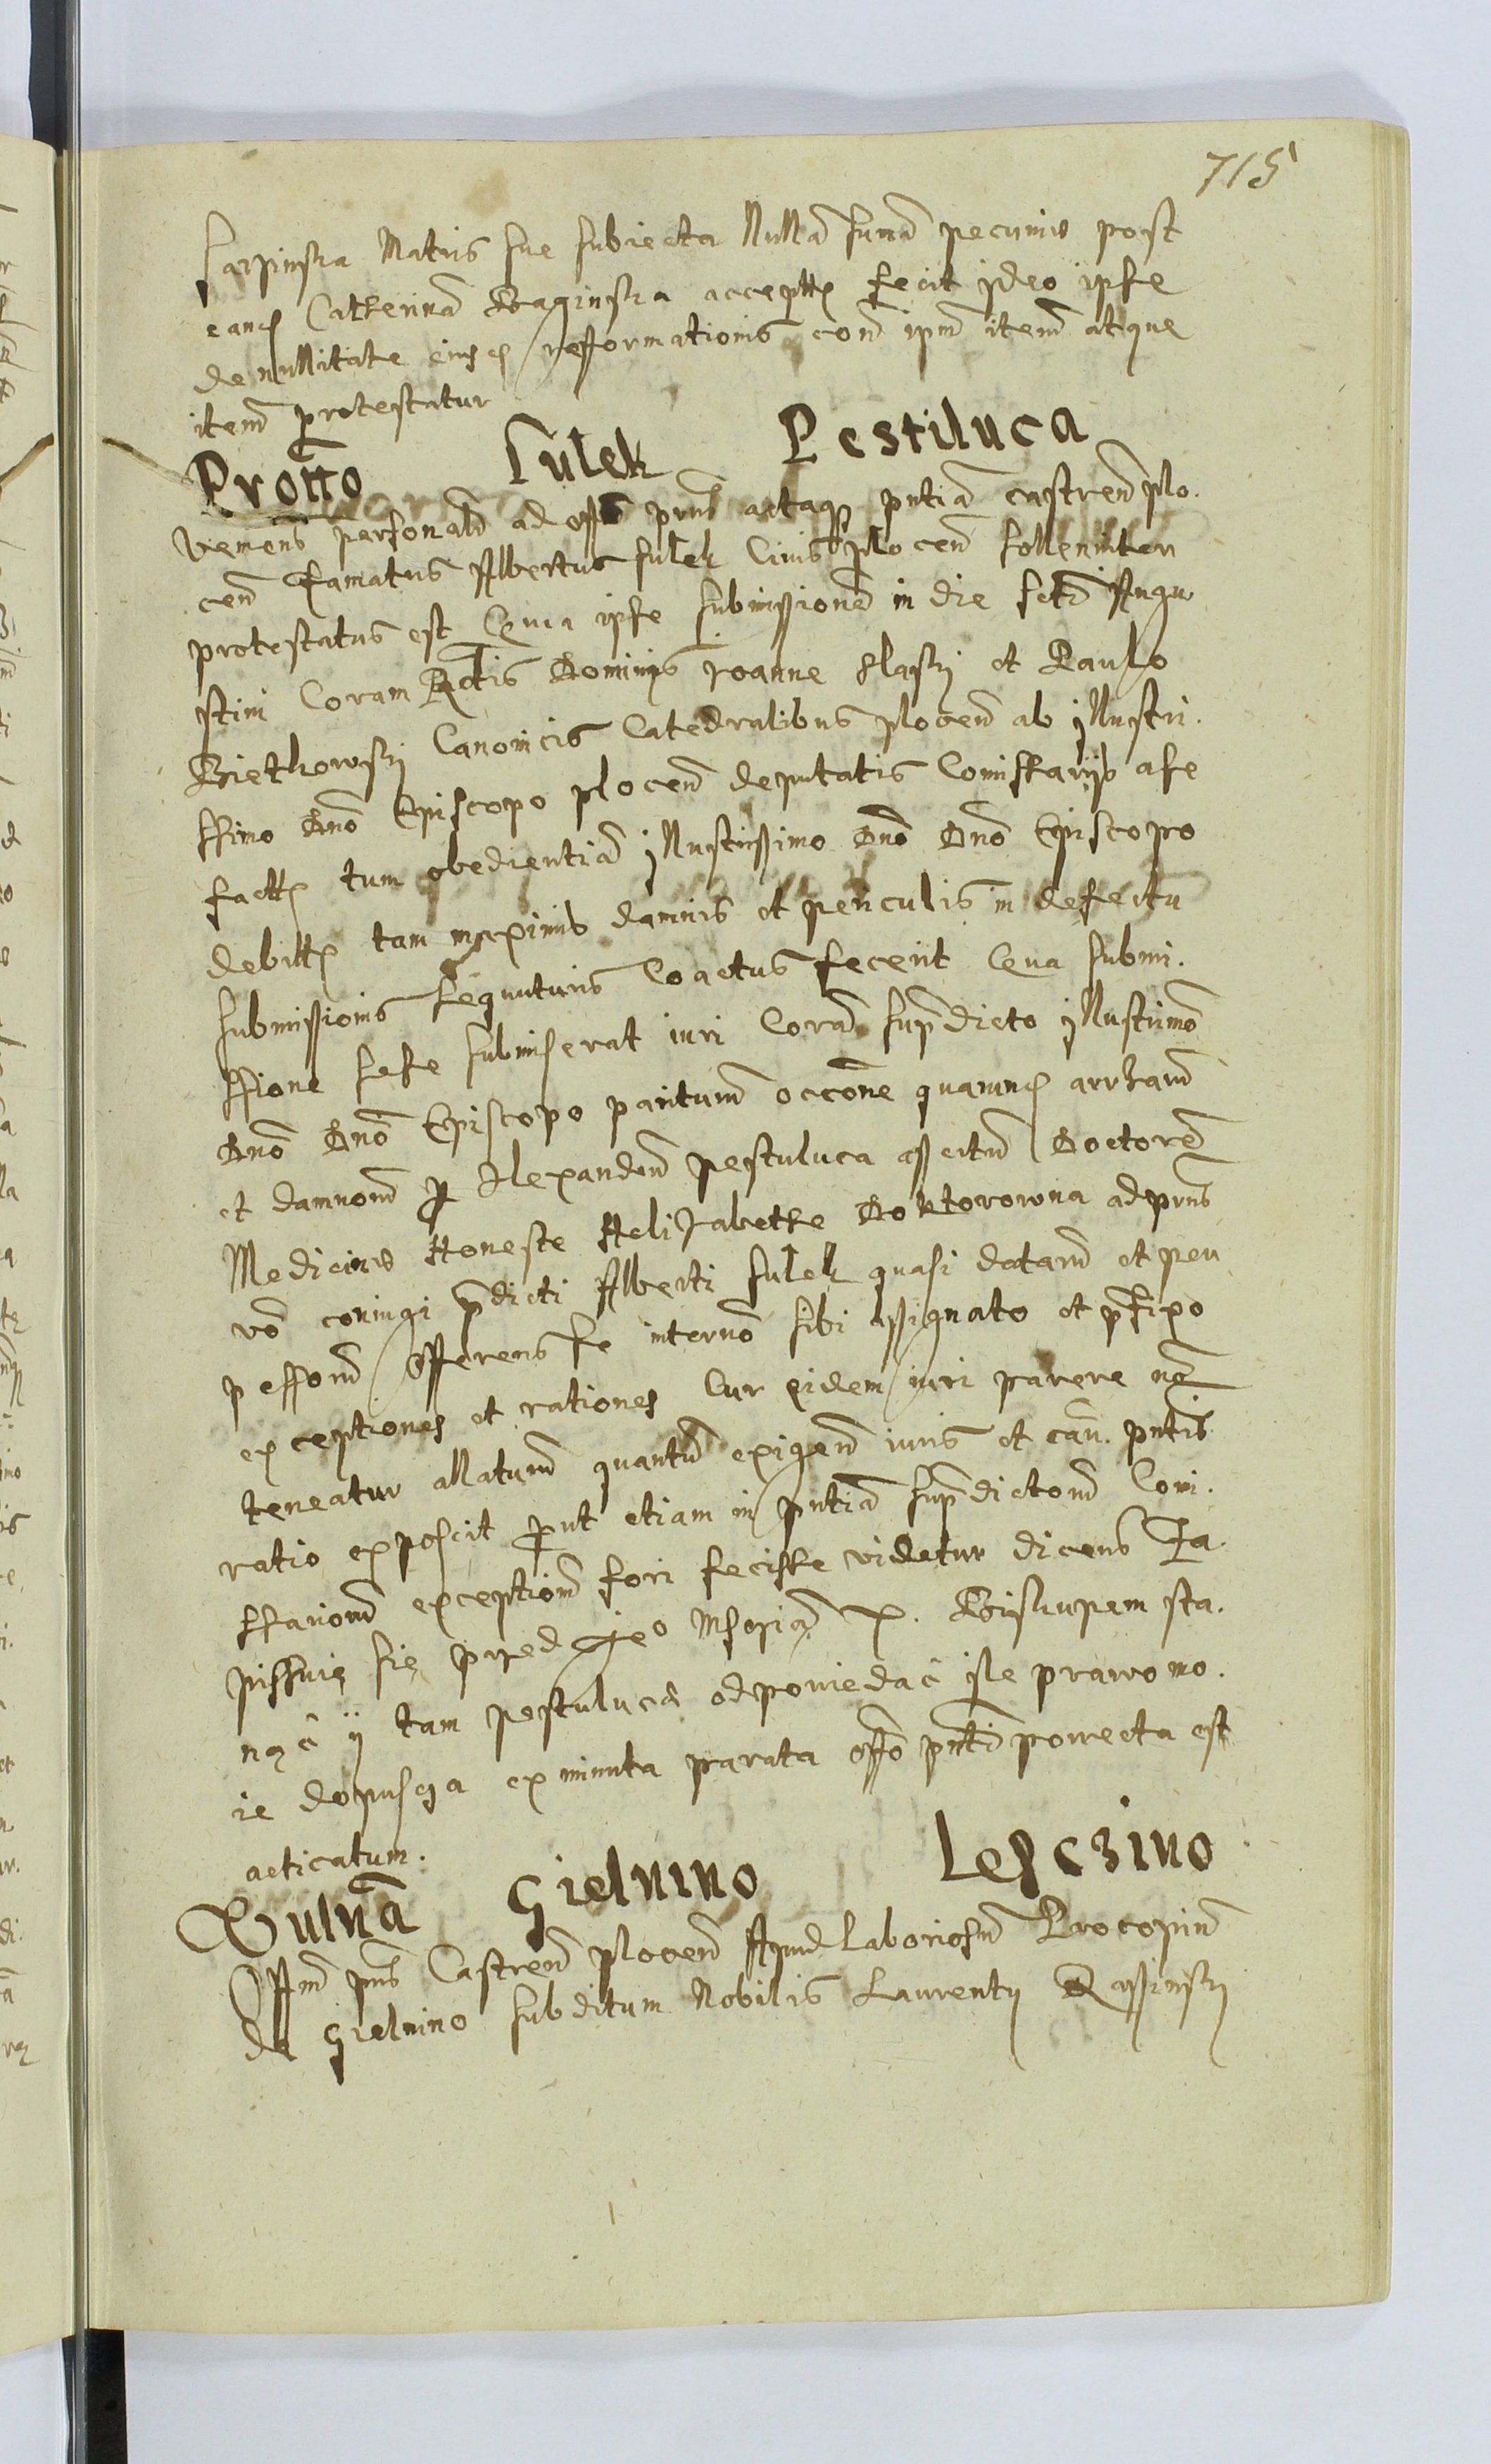 715
Karpinska Matris sue subiecta Nullã summã pecuniis post
eandẽ Catherinã Baginska acceptt fecit ideo ipse
de nullitate eiusdẽ refformationis con ipm itenũ atque
itenũ protestatur
Prottõ Sulek Pestiluca
Veniens personalr ad offm pns actaqz pntia castren plo.
cen famatus Albertus Sulek Civis plocen solleniter
protestatus est Qma ipse submissione in die scti Augu
stini Coram Rndis Dominis Joanne Slaski et Paulo
Piethowski Canonicis Catedralibus plocen ab illustri.
ssimo Dno Episcopo plocen deputatis Comissarijs a se
factt tum obedientiã illustrissimo Dno Dno Episcopo
debitt tam maximis damnis et periculis in defectu
submissionis sequuturis Coactus fecerit Qua submi.
ssione sese submiserat iuri Corã supradicto illustrimo
Dno Dno Episcopo pariturũ occone quarundẽ arrharũ
et damnorũ p Alexandrũ pestuluca assertũ Doctorẽ
Medicinis Honeste Helizabethe Doktorowna ad prns
vo coniugi pdicti Alberti Sulek quasi datarũ et peu
p essorũ Offerens se in termo sibi assignato et prefixo
exceptiones et rationes Cur eidem iuri parere nõ
teneatur allaturũ quantũ exigen iuris et cau. pntis
ratio exposcit put etiam in pntia supradictorũ Comi.
ssariorũ exceptiorũ fori fecisse videtur dicens Za
pissuię się pszed Jeo Msczią X. Biskupem sta.
nąć ÿ tam pestuluca odpoviedać ile prawo mo.
ie dopuscza ex minuta parata offo pnti porrecta est
acticatum.
Vulnã Gielnino Lesczino
Offm pns Castren plocen Apud Laboriosũ Procopiũ
de Gielnino subditum Nobilis Laurentij Rassinski